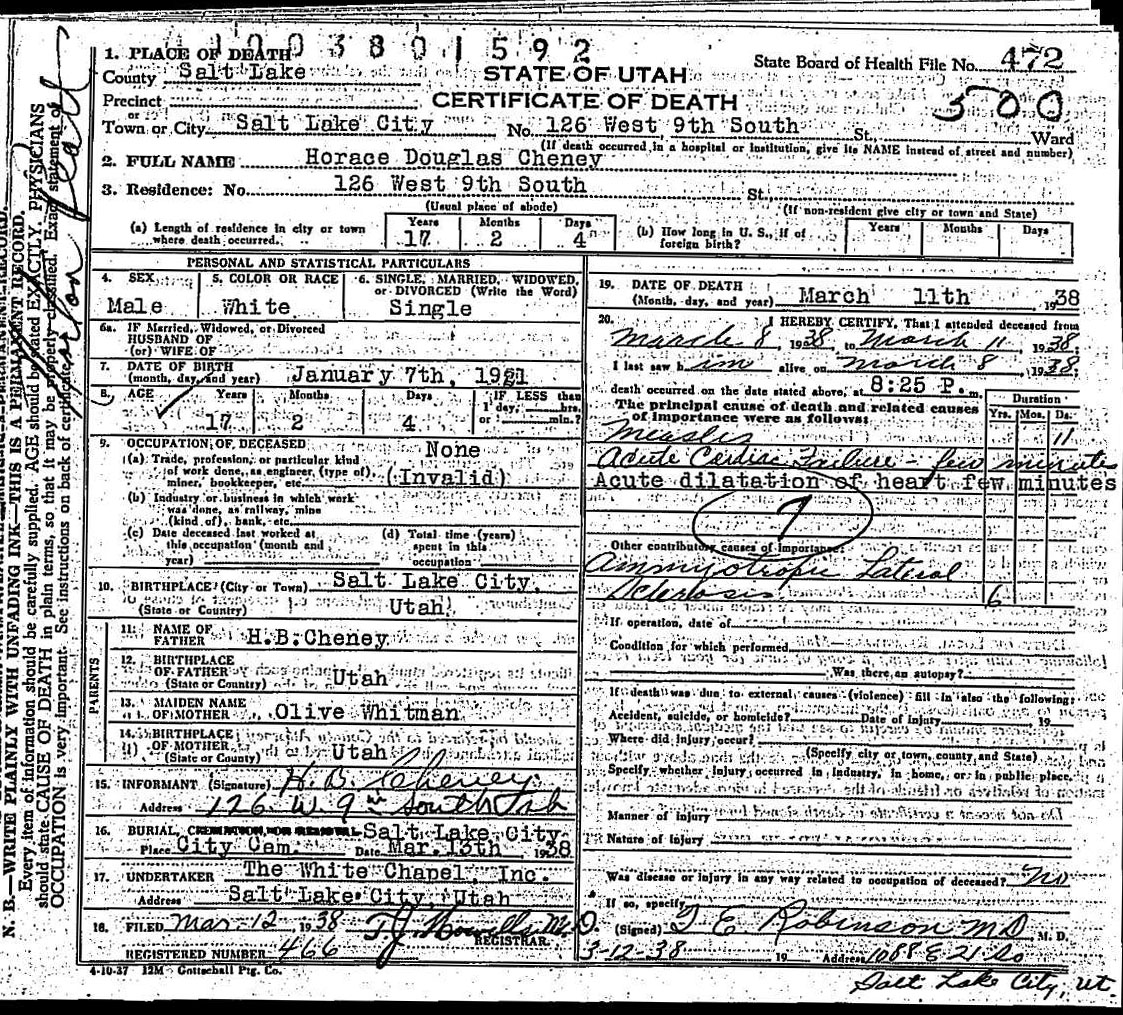 1003801592
1. PLACE OF DEATH
County Salt Lake
STATE OF UTAH
State Board of Health File No. 472
Precinct
CERTIFICATE OF DEATH
500
or
Town or City Salt Lake City No. 126 West 9th South St. Ward
(If death occurred in a hospital or institution, give its NAME instead of street and number)
2. FULL NAME Horace Douglas Cheney
3. Residence: No. 126 West 9th South St.
(Usual place of abode) (If non-resident give city or town and State)
(a) Length of residence in city or town where death occurred. Years 17 Months 2 Days 4
(b) How long in U. S., if of foreign birth? Years Months Days
PERSONAL AND STATISTICAL PARTICULARS
4. SEX Male
5. COLOR OR RACE White
6. SINGLE, MARRIED, WIDOWED, or DIVORCED (Write the Word) Single
6a. IF Married, Widowed, or Divorced
HUSBAND OF
(or) WIFE OF
7. DATE OF BIRTH
(month, day, and year) January 7th, 1921
8. AGE Years 17 Months 2 Days 4 IF LESS than 1 day, hrs. or min.?
9. OCCUPATION OF DECEASED None
(a) Trade, profession, or particular kind of work done, as engineer, (type of) miner, bookkeeper, etc. (Invalid)
(b) Industry or business in which work was done, as railway, mine (kind of), bank, etc.
(c) Date deceased last worked at this occupation (month and year)
(d) Total time (years) spent in this occupation
10. BIRTHPLACE (City or Town) Salt Lake City,
(State or Country) Utah
PARENTS
11. NAME OF FATHER H.B. Cheney
12. BIRTHPLACE OF FATHER
(State or County) Utah
13. MAIDEN NAME OF MOTHER Olive Whitman
14. BIRTHPLACE OF MOTHER
(State or County) Utah
15. INFORMANT (Signature) H. B. Cheney
Address 126 W 9th South
16. BURIAL, CREMATION, OR REMOVAL Salt Lake City
Place City Cem. Date Mar. 13th 1938
17. UNDERTAKER The White Chapel, Inc.
Address Salt Lake City, Utah
18. FILED Mar-12 1938 T.J. Howells M.D.
REGISTRAR
REGISTERED NUMBER 466
4-10-37 12M Gottschall Ptg. Co.
19. DATE OF DEATH
(Month, day, and year) March 11th 1938
20. I HEREBY CERTIFY, That I attended deceased from
March 8, 1938, to March 11, 1938.
I last saw him alive on March 8, 1938.
death occurred on the date stated above, at 8:25 P. m.
The principal cause of death and related causes of importance were as follows:
Duration
Yrs. Mos. Da.
Measles 11
Acute Cardiac Failure - few minutes
Acute dilatation of heart few minutes
Other contributory causes of importance:
Ammyotropic Lateral
Sclerosis 6
If operation, date of
Condition for which performed
Was there an autopsy?
If death was due to external causes (violence) fill in also the following:
Accident, suicide, or homicide? Date of Injury 19
Where did injury occur?
(Specify city or town, county and State)
Specify whether injury occurred in industry, in home, or in public place.
Manner of injury
Nature of injury
Was disease or injury in any way related to occupation of deceased? No
If so, specify
(Signed) T E Robinson MD M. D.
3-12-38 19 Address 1088 E 21 So
Salt Lake City, Ut.
N. B.—WRITE PLAINLY WITH UNFADING INK—THIS IS A PERMANENT RECORD.
Every item of information should be carefully supplied. AGE should be stated EXACTLY. PHYSICIANS
should state CAUSE OF DEATH in plain terms, so that it may be properly classified. Exact statement of
OCCUPATION is very important. See instructions on back of certificate.